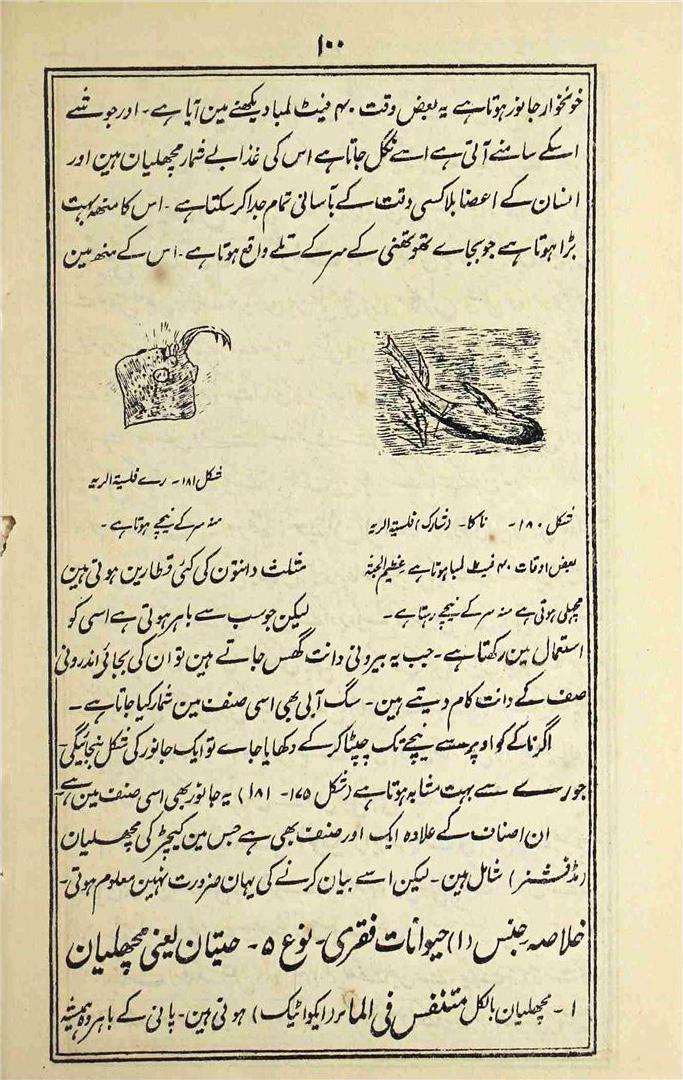 ۱۰۰
خونخوار جانور ہوتا ہے یہ بعض وقت ۴۰ فیٹ لمبا دیکھنے مین آیا ہے ۔ اور جو شے
اسکے سامنے آتی ہے اسے نگل جاتا ہے اس کی غذا بے شمار مچھلیان ہین اور
انسان کے اعضا بلا کسی دقت کے بآسانی تمام جدا کر سکتا ہے ۔ اس کا منھ بہت
بڑا ہوتا ہے جو بجاے تھوتھنی کے سر کے تلے واقع ہوتا ہے ۔ اس کے منھ مین
شکل ۱۸۱ ۔ رے فلسیة الریہ
منہ سر کے نیچے ہوتا ہے ۔
شکل ۱۸۰ ۔ ناکا ۔ (شارک) فلسیة الریہ
بعض اوقات ۴۰ فیٹ لمبا ہوتا ہے عظیم الجثہ
مچھلی ہوتی ہے منہ سر کے نیچے رہتا ہے ۔
مثلث دانتون کی کئی قطارین ہوتی ہین
لیکن جو سب سے باہر ہوتی ہے اسی کو
استعمال مین رکھتا ہے ۔ جب یہ بیرونی دانت گھس جاتے ہین تو ان کی بجائے اندرونی
صف کے دانت کام دیتے ہین ۔ سگ آبی بھی اسی صنف مین شمار کیا جاتا ہے ۔
اگر ناکے کو اوپر سے نیچے تک چپٹا کر کے دکھایا جاے تو ایک جانور کی شکل بنجائیگی
جو رے سے بہت مشابہ ہوتا ہے (شکل ۱۷۵ ۔ ۱۸۱) یہ جانور بھی اسی صنف مین ہے
ان اصناف کے علاوہ ایک اور صنف بھی ہے جس مین کیچڑ کی مچھلیان
(مڈ فشنر) شامل ہین ۔ لیکن اسے بیان کرنے کی یہان ضرورت نہین معلوم ہوتی ۔
خلاصہ جنس (۱) حیوانات فقری ۔ نوع ۵ ۔ حیتان یعنی مچھلیان
۱ ۔ مچھلیان بالکل متنفس فی الماء (ایکواٹیک) ہوتی ہین ۔ پانی کے باہر وہ ہمیشہ